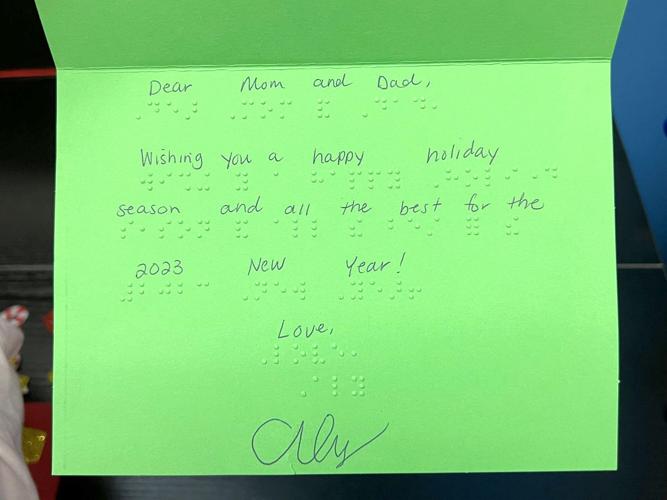 Dear Mom and Dad,
Wishing you a happy holiday
season and all the best for the
2023 New Year!
Love,
Aly